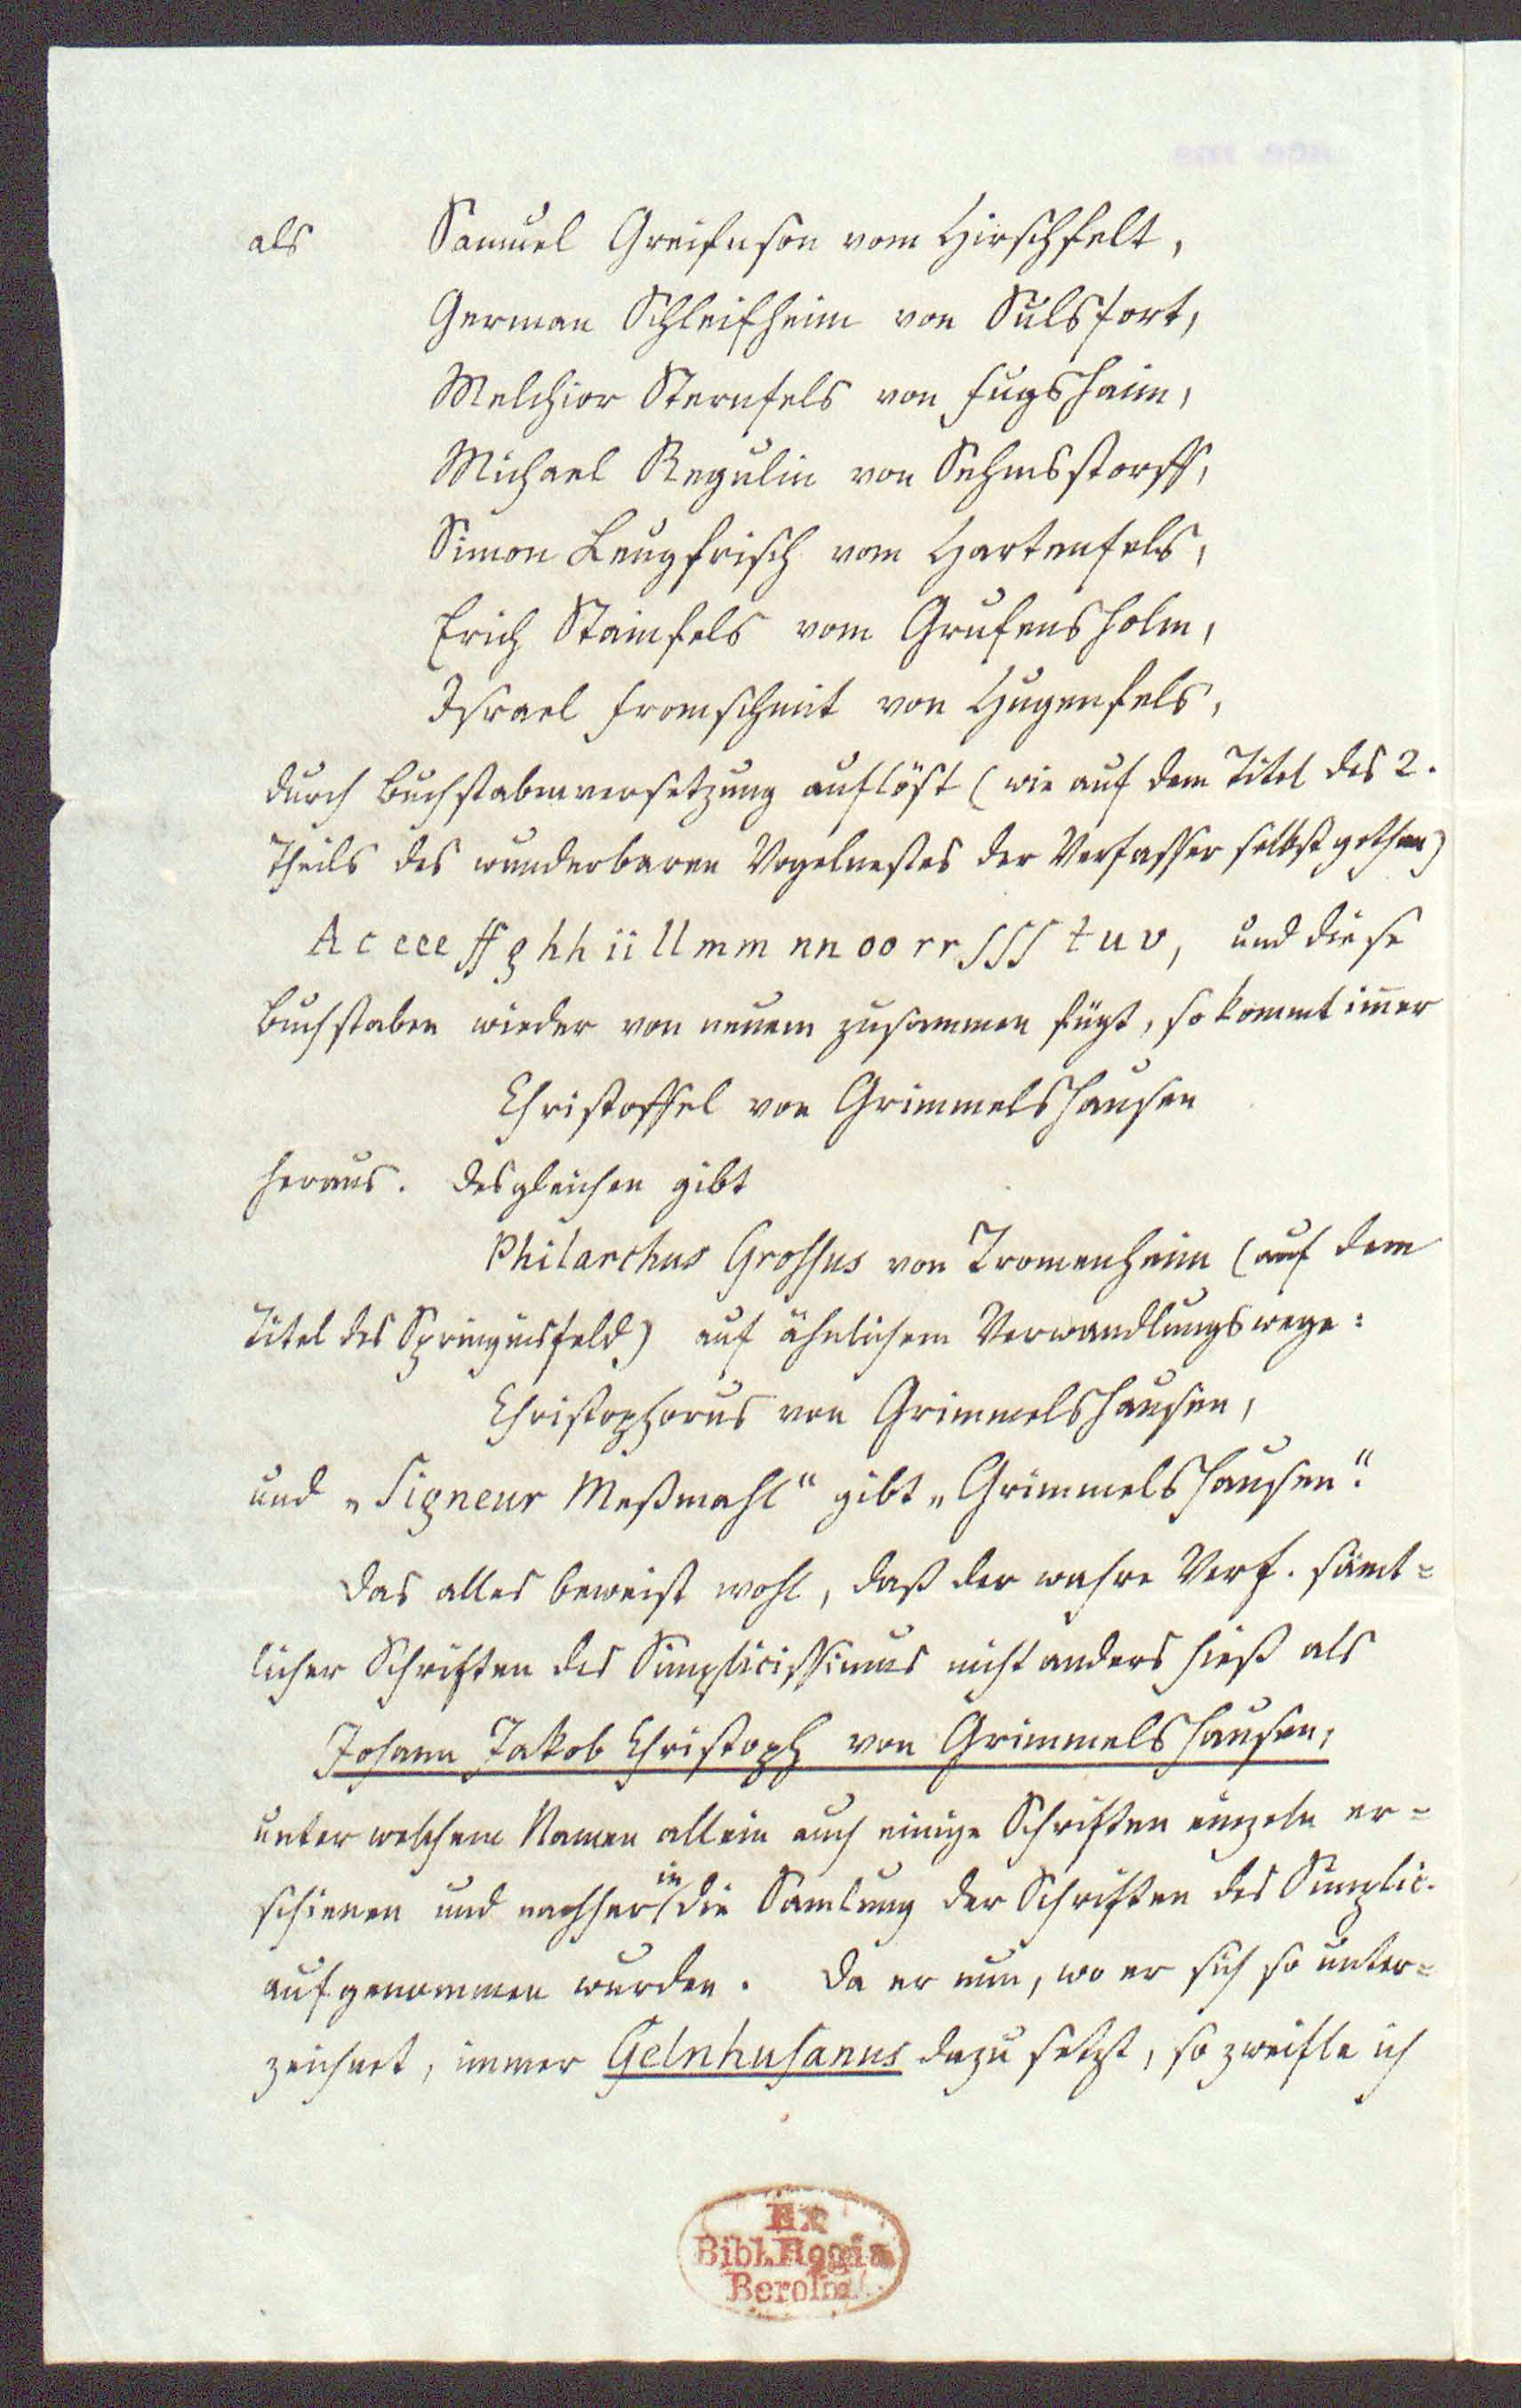 als Samuel Greifnson vom Hirschfelt,
German Schleifheim von Sulsfort,
Melchior Sternfels von Fugshaim,
Michael Regulin von Sehmsstorff,
Simon Leugfrisch von Hartenfels,
Erich Stainfels vom Grufensholm,
Israel Fromschmit von Hugenfels,
durch Buchstabenversetzung auflöst (wie auf dem Titel des 2.
Theils des wunderbaren Vogelnestes der Verfasser selbst gethan)
A c eee ff g hh ii ll mm nn oo rr sss t u v, und diese
Buchstaben wieder von neuem zusammen fügt, so kommt im̅er
Christoffel von Grimmelshausen
heraus. Desgleichen gibt
Philarchus Grossus von Tromenheim (auf dem
Titel des Springinsfeld) auf ähnlichem Verwandlungswege:
Christophorus von Grimmelshausen,
und „Signeur Meßmahl“ gibt „Grimmelshausen“.
Das alles beweist wohl, daß der wahre Verf. sämt-
licher Schriften des Simplicissimus nicht anders hieß als
Johann Jakob Christoph von Grimmelshausen,
unter welchem Namen allein auch einige Schriften einzeln er-
schienen und nachher in die Samlung der Schriften des Simplic.
aufgenommen wurden. Da er nun, wo er sich so unter-
zeichnet, immer Gelnhusanus dazu setzt, so zweifle ich
Ex
Bibl. Regia
Berolin.